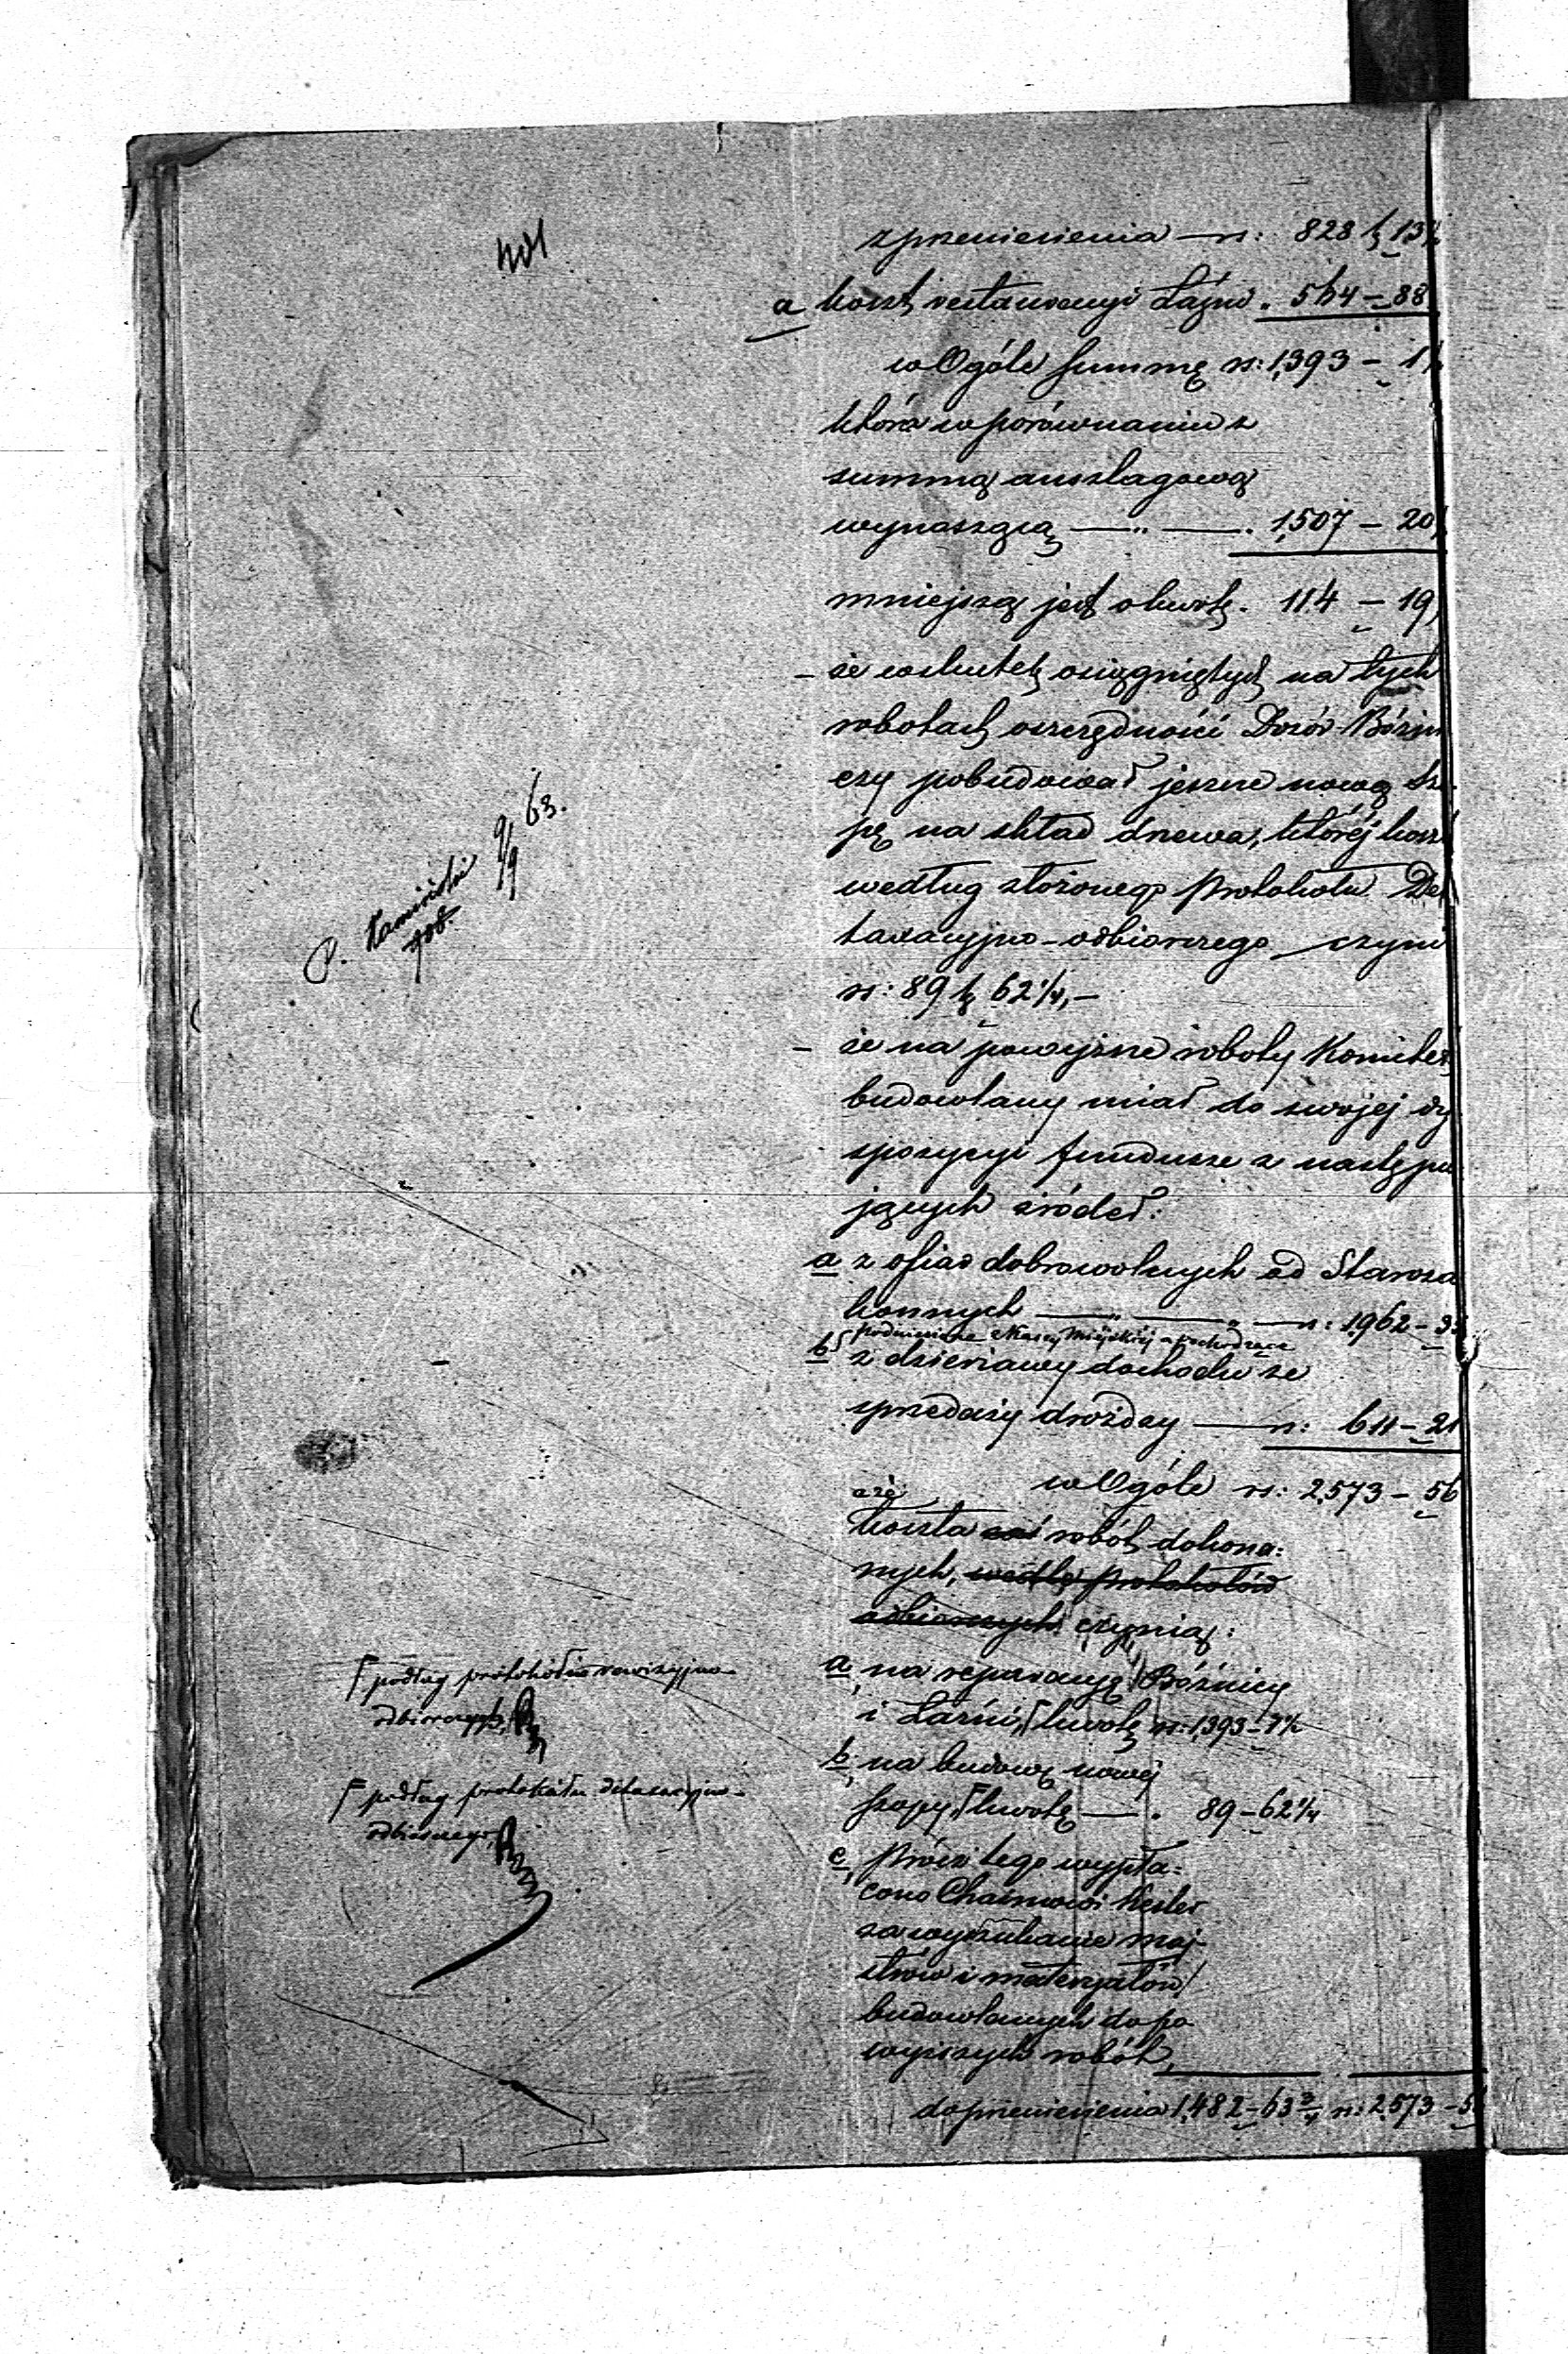 z przeniesienia — rs: 828 k 13½
a koszt restauracyi Łaźni „ 564 – 88
w Ogóle summę rs: 1,393 – 1½
która w porównaniu z
summą anszlagową
wynoszącą —„— „ 1,507 – 20
mniejszą jest o kwotę „ 114 – 19
– że wskutek osiągniętych na tych
robotach oszczędności Dozór Bóżni
czy pobudował jeszcze nową szo
pę na skład drzewa, któréj koszt
według złożonego Protokołu De
taxacyjno-odbiorczego czyni
rs: 89 k 62¼, –
– że na powyższe roboty Komitet
budowlany miał do swojej dy
spozycyi fundusze z następu
jących źródeł:
a z ofiar dobrowolnych od Staroza
konnych —„—„— rs: 1,962 – 35
podniesione z Kassy Miejskiéj a pochodzące
b z dzierżawy dochodu ze
sprzedaży drożdży — rs: 611 – 21
w Ogóle rs: 2,573 – 56
a że
koszta robót dokona:
nych, wedle protokołów
odbiorczych czynią:
a, na reparacyę Bóżnicy
i Łaźni, kwotę rs: 1,393 – 1½
b, na budowę nowéj
szopy, kwotę — „ 89 – 62¼
c, Prócz tego wypła:
cono Chaimowi Kesler
za wyszukanie maj
strów i materyałów
budowlanych do po
wyższych robót,
do przeniesienia 1,482 – 63¾ rs: 2,573 – 56
P. Kamiński 9/9 63.
podług protokołów rewizyjno-
odbiorczych,
podług protokółu detaxacyjno-
odbiorczego,